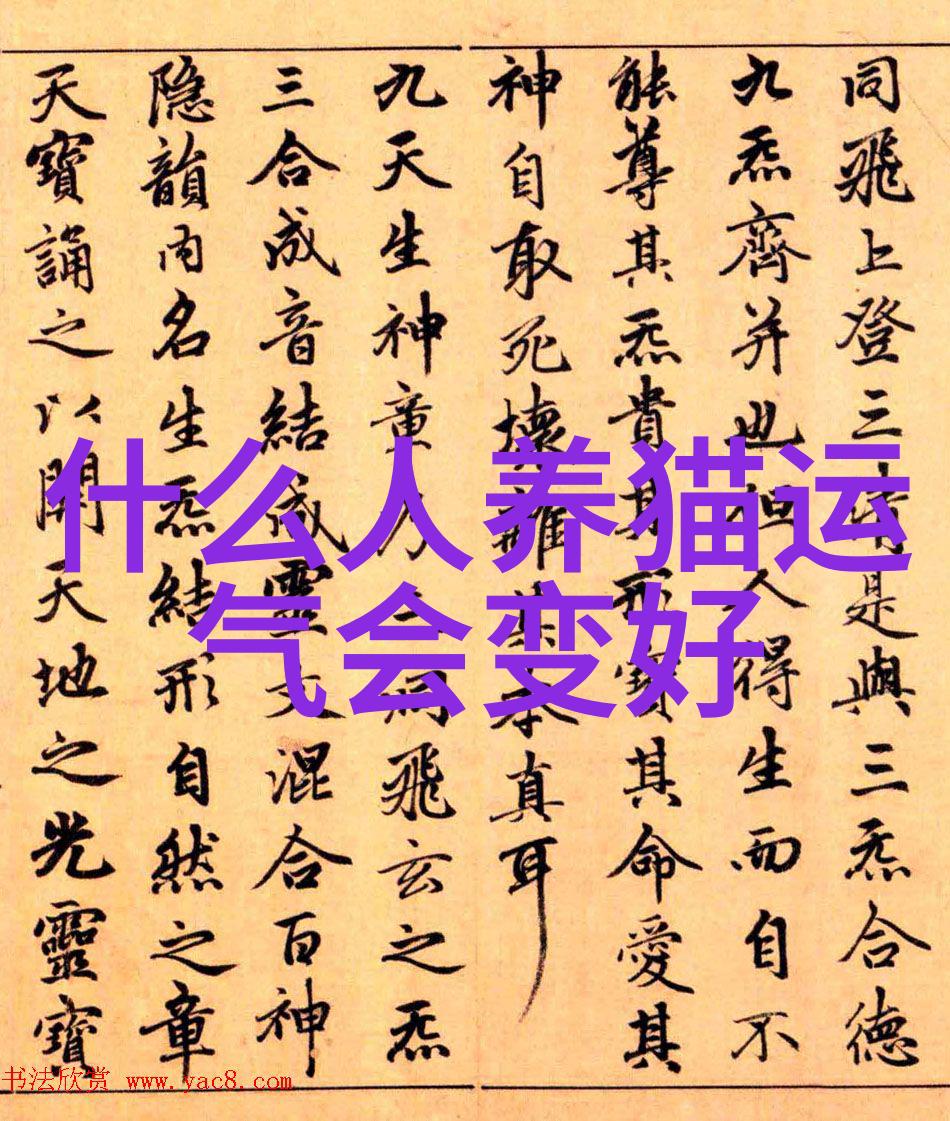 同飛上登三清是與三炁合德
九炁齊并也但人得生而自不
能尊其炁貴其形寶其命愛其
神自取死壞離其本真耳
九天生神章乃三洞飛玄之炁
三合成音結成靈文混合百神
隐韻内名生炁結形自然之章
天寶誦之以開天地之光靈寶
什么人养猫运
气会变好
书法欣赏 www.yac8.com